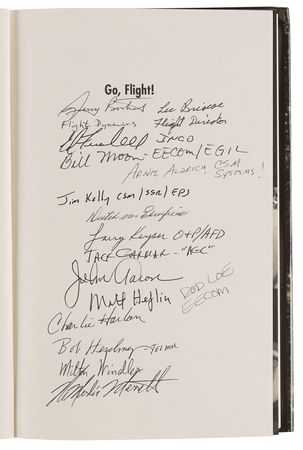 Go, Flight!
Jerry Lee Briscoe
Flight Dynamics Flight Director
INCO
Bill Moon EECOM/EGIL
ARNIE ALDRICH CSM
SYSTEMS!
Jim Kelly CSM/SSR/EPS
Larry Keyser O+P/AFD
JACK GARMAN - "AGC"
John Aaron
Matt Heflin ROD LOE
EECOM
Charlie Harlan
Bob
Milton Windler
Merlin Merritt